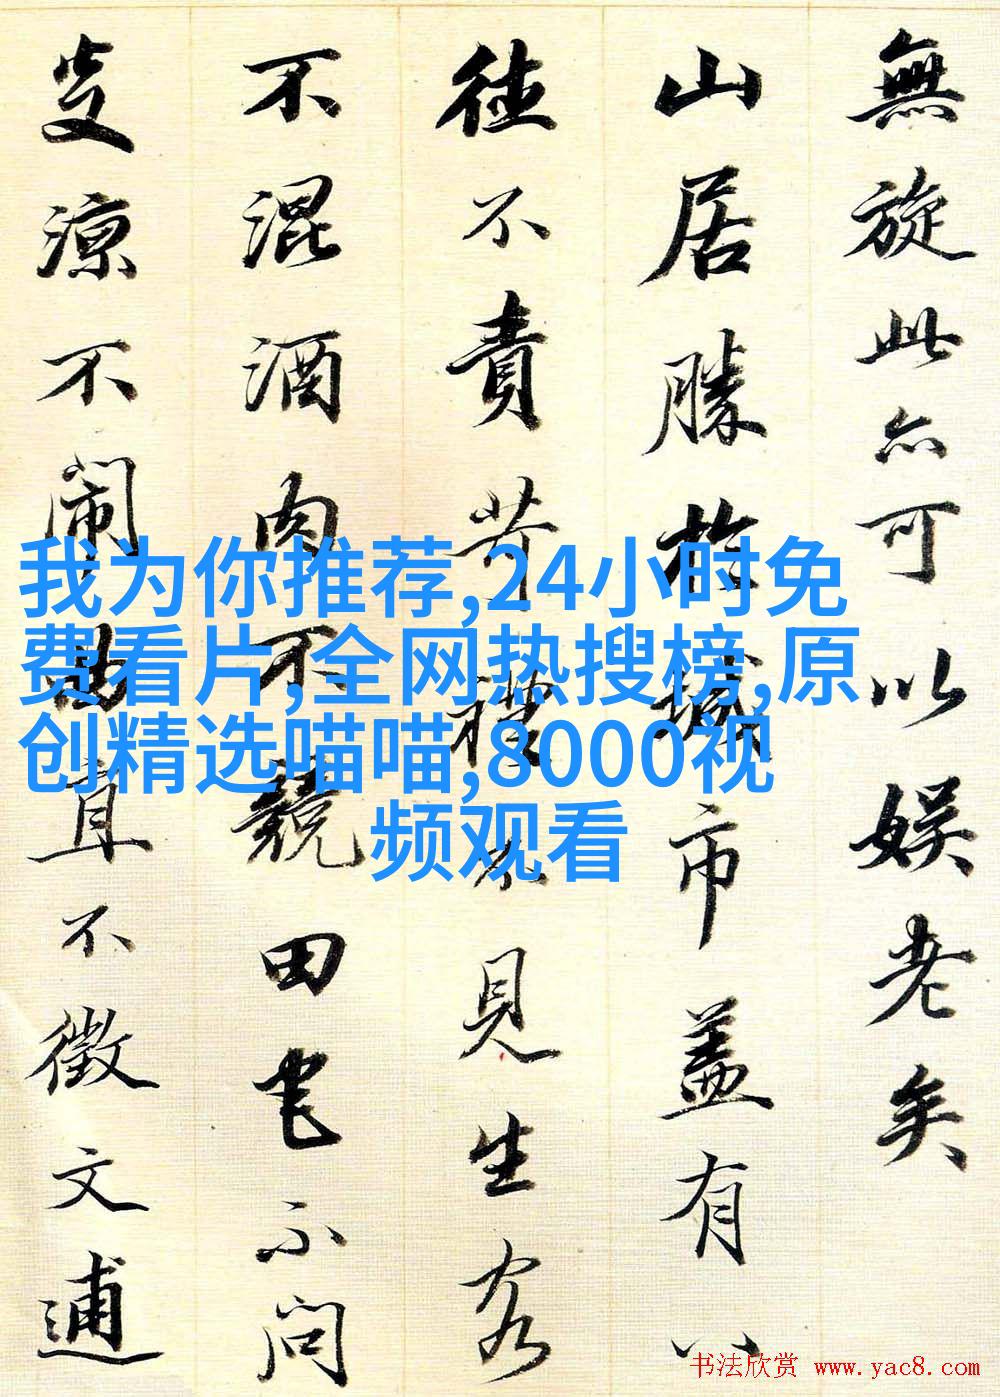 無旋此亦可以娱老矣
山居勝於城市盖有八
徳不責苛禮不見生客
不混酒肉不競田宅不問
炎涼不闹曲直不徵文逋
我为你推荐,24小时免
费看片,全网热搜榜,原
创精选喵喵,8000视
频观看
书法欣赏 www.yac8.com